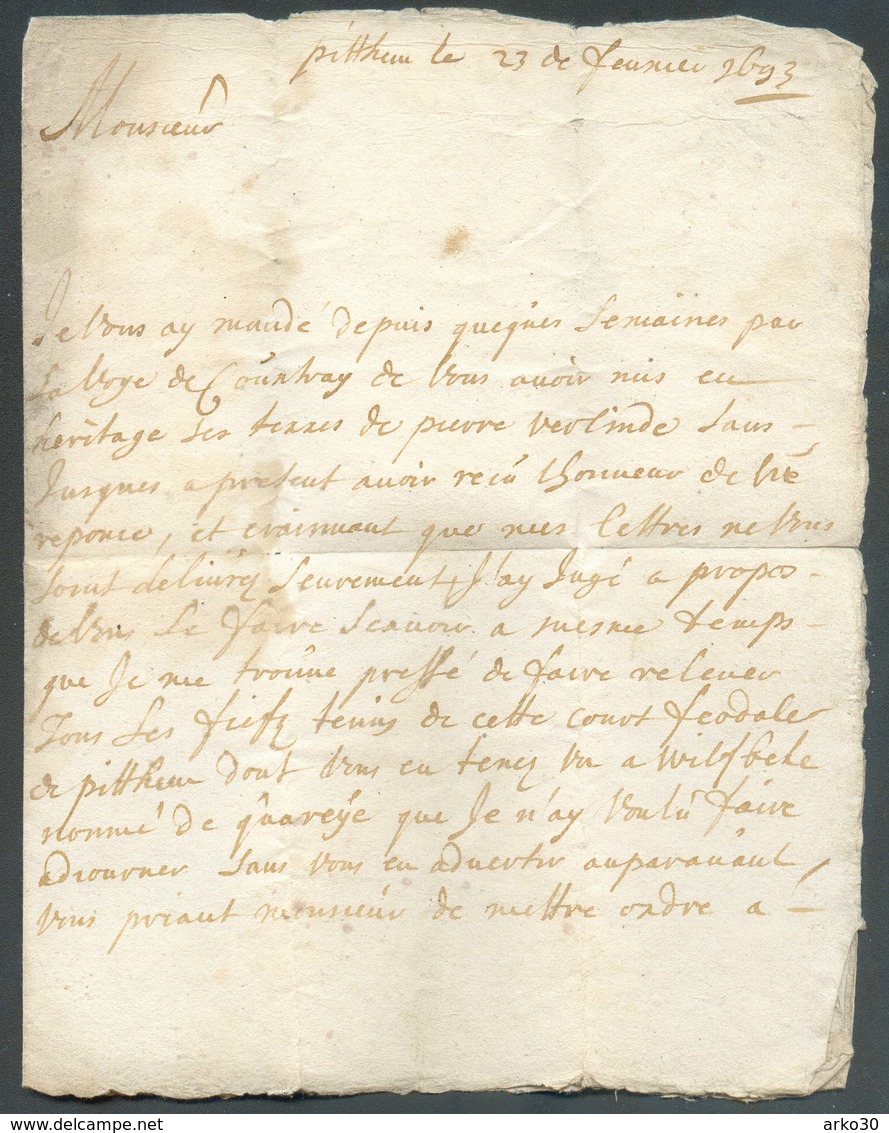 pitthem le 23 de feurier 1693
Monsieur
Je Vous ay mandé depuis queqũes semaines par
La Voye de Courtray de Vous auoir mis en
heritage Les terres de pierre verlinde sans
Jusques a present auoir recu Lhonneur de Vr̃e
reponce, et crainnant que mes Lettres ne Vous
sont deliurez seurement, J'ay Jugé a propos
de Vous Le faire scauoir a mesme temps
que Je me trouue pressé de faire releuer
Tous Les fiefz tenus de cette court feodale
de pitthem dont Vous en tenez Vn a Wilsbeke
nommé de quareÿe que Je n'ay Voulu faire
adiourner sans Vous en aduertir auparauant
Vous priant monsieur de mettre ordre a
www.delcampe.net
arko30